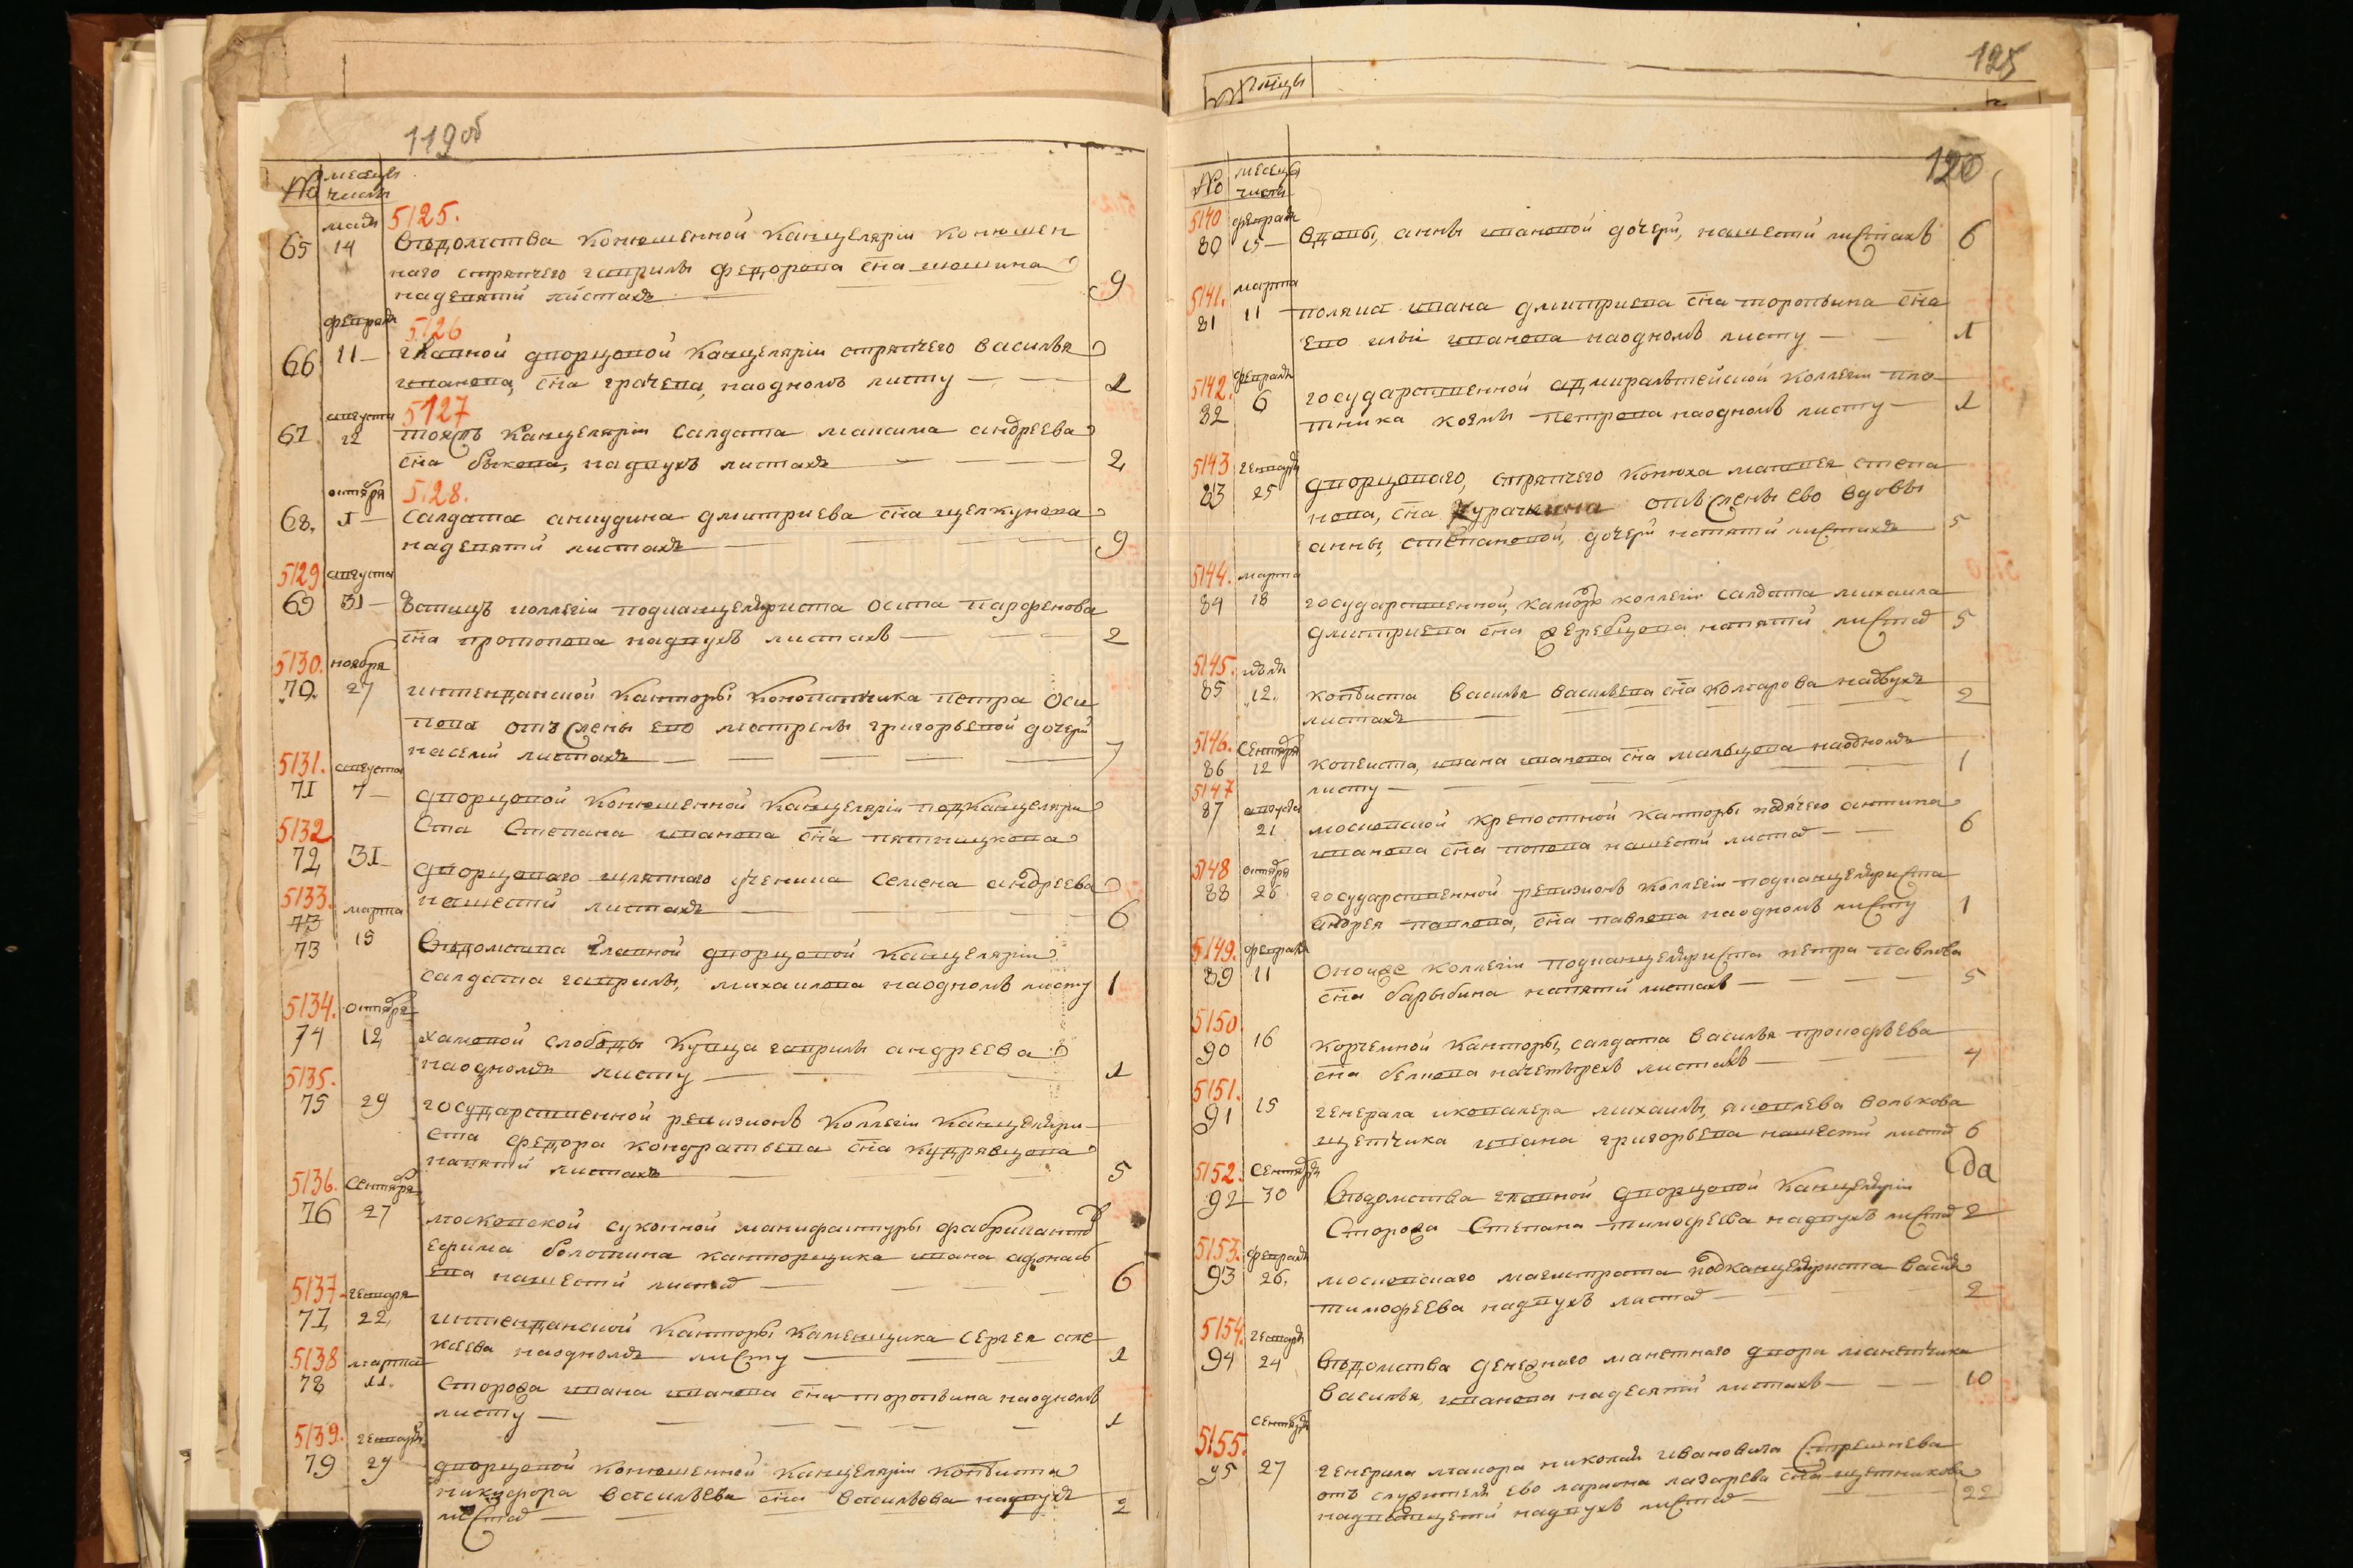 119 об
№ месяцы числы
маия 5125.
65 14 Ведомства Конюшенной Канцелярии Конюшен
наго стряпчего гаврилы федорова сна шошина
надевяти листахъ 9
февраля 5126
66 11 главной дворцовой Канцелярии стряпчего Василья
иванова, сна грачева, наодномъ листу 1
августа 5127
67 22 тоежъ Канцелярии Салдата максима андреева
сна быкова, надвухъ листахъ 2
октября 5128.
68. 1 Салдата аникудина дмитриева сна щелкунова
надевяти листахъ 9
5129 августа
69 31 Юстицъ коллегии подканцеляриста осипа парфенова
сна протопопа надвухъ листахъ 2
5130. ноября
70. 27 интенданской Канторы Конопатчика петра оси
пова отъ жены ево матрены григорьевой дочери
насеми листахъ 7
5131. августа
71 7 дворцовой Конюшенной Канцелярии подканцеляри
ста Степана иванова сна пятницкова
5132
72 31 дворцоваго шляпнаго ученика Семена андреева
нашести листахъ 6
5133. марта
73
73 15 Ведомства Главной дворцовой Канцелярии
салдата гаврилы, михаилова наодномъ листу 1
5134. октября
74 12 хамовной слободы Купца гаврилы андреева
наодномъ листу 1
5135.
75 29 государственной ревизионъ Коллегии Канцеляри
ста федора кондратьева сна кудрявцова
напяти листахъ 5
5136. Сентября
76 27 московской суконной манифактуры фабриканта
Ефима болотина канторщика ивана афонась
ева нашести листахъ 6
5137. генваря
77 22 интенданской Канторы Каменщика Сергея але
ксеева наодномъ листу 1
5138 марта
78 11. сторожа ивана иванова сна торопыгина наодномъ
листу 1
5139. генваря
79 29 дворцовой Конюшенной Канцелярии копеиста
никифора Васильева сна Васильева надвухъ
листахъ 2
125
120
№ месяца числа
5140 февраля
80 15 Вдовы, анны ивановой дочери, нашести листахъ 6
5141. марта
81 11 ивана дмитриева сна сна
ево ильи иванова наодномъ листу 1
5142. февраля
82 6 государственной адмиралтейской Коллегии пло
тника козмы петрова наодномъ листу 1
5143 генваря
83 25 дворцоваго, стряпчего Конюха матвея степа
нова, сна Курачкина отъ жены ево вдовы
анны, степановой, дочери напяти листахъ 5
5144. марта
84 18 государственной, каморъ коллегии салдата михаила
дмитриева сна жеребцова напяти листахъ 5
5145. июля
85 12. копеиста Василья Васильева сна Комарова надвухъ
листахъ 2
5146. Сентября
86 12 копеиста, ивана иванова сна мальцова наодномъ
листу 1
5147
87 августа 21 московской крепостной канторы подячего антипа
иванова сна попова нашести листахъ 6
5148 октября
88 26 государственной ревизионъ коллегии подканцеляриста
андрея павлова, сна павлова наодномъ листу 1
5149. февраля
89 11 оноиже коллегии подканцеляриста петра павлова
сна барыбина напяти листахъ 5
5150
90 16 корчемной канторы, салдата Василья прокофьева
сна белкова начетырехъ листахъ 4
5151.
91 15 генерала икавалера михаилы, яковлева волкова
ивана григорьева нашести листахъ 6
5152. Сентября
92 30 Ведомства главной дворцовой Канцелярии
Сторожа Степана тимофеева надвухъ листахъ 2
5153. февраля
93 26. московскаго магистрата подканцеляриста Васил
тимофеева надвухъ листахъ 2
5154. генваря
94 24 Ведомства денежнаго манетнаго двора манетчика
Василья, иванова надесяти листахъ 10
5155. Сентября
95 27 генерала маиора николая ивановича Стрешнева
отъ служителя ево лариона лазарева сна щетникова
надватцети надвухъ листахъ 22